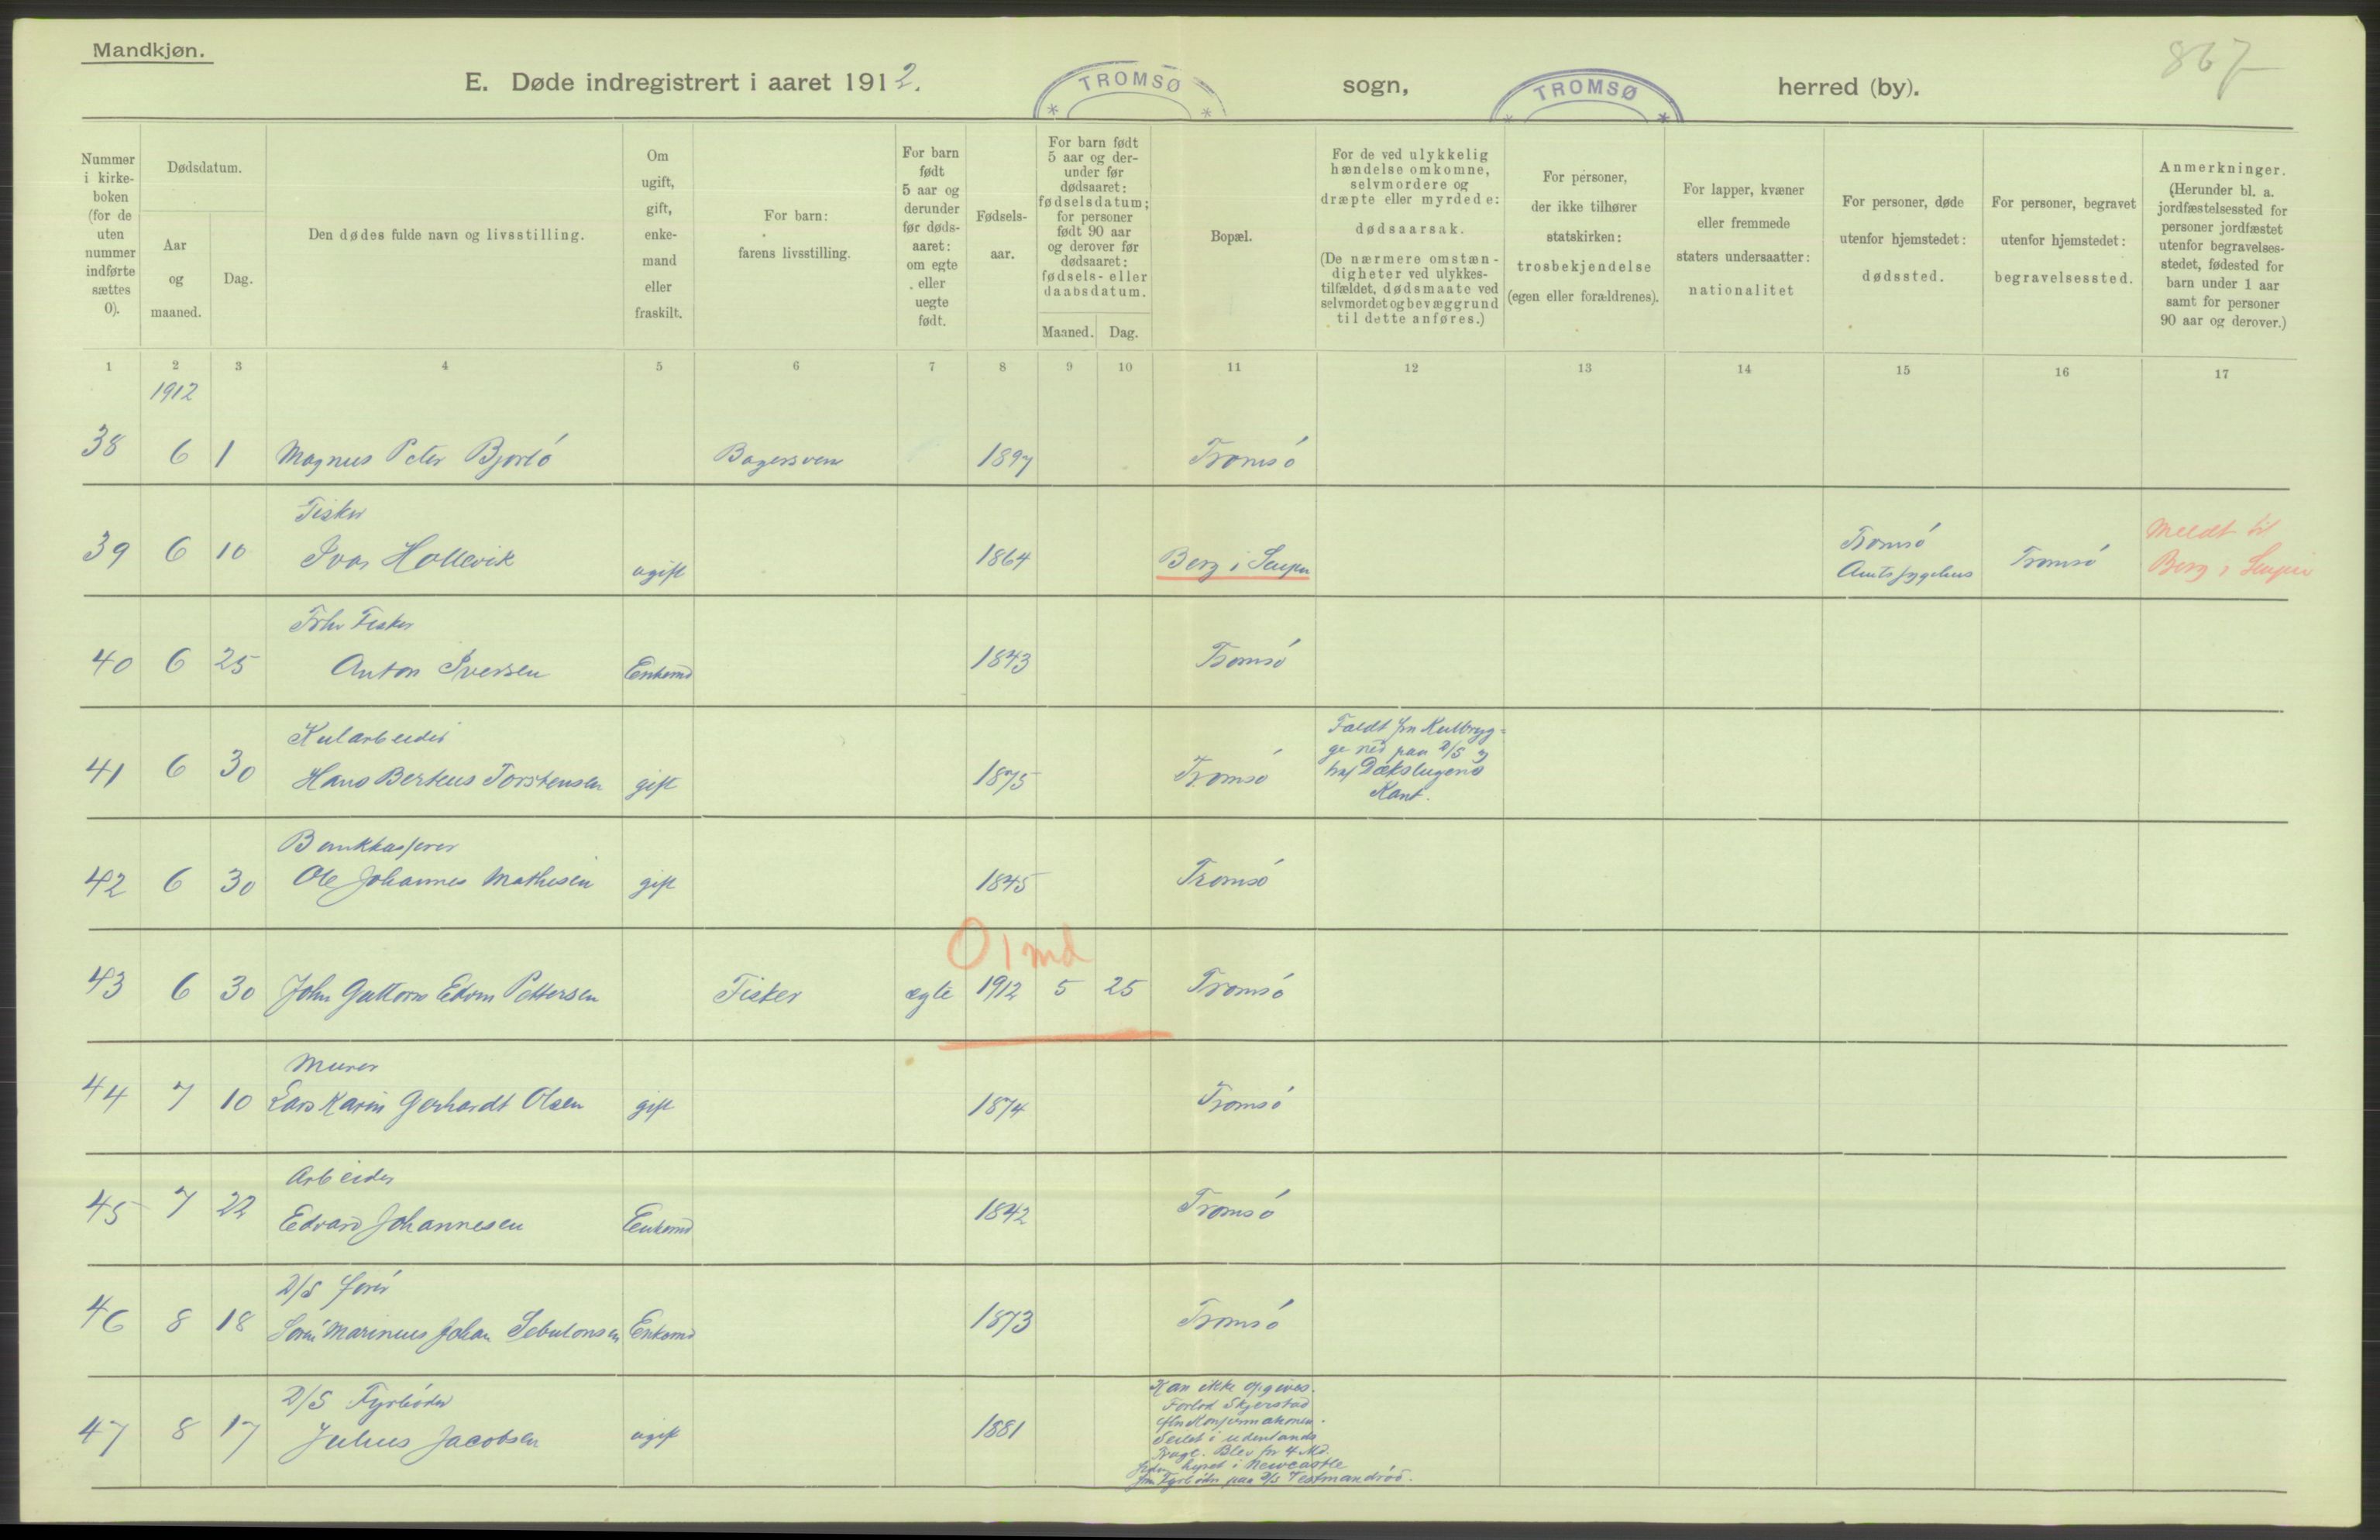 Mandkjøn.
867
E. Døde indregistrert i aaret 1912. TROMSØ sogn, TROMSØ herred (by).
Nummer i kirke-boken (for de uten nummer indførte sættes 0).
Dødsdatum.
Aar og maaned.
Dag.
Den dødes fulde navn og livsstilling.
Om ugift, gift, enke-mand eller fraskilt.
For barn: farens livsstilling.
For barn født 5 aar og derunder før døds-aaret: om egte eller uegte født.
Fødsels-aar.
For barn født 5 aar og der-under før dødsaaret: fødselsdatum; for personer født 90 aar og derover før dødsaaret: fødsels- eller daabsdatum.
Maaned. Dag.
Bopæl.
For de ved ulykkelig hændelse omkomne, selvmordere og dræpte eller myrdede: dødsaarsak. (De nærmere omstæn-digheter ved ulykkes-tilfældet, dødsmaate ved selvmordet og bevæggrund til dette anføres.)
For personer, der ikke tilhører statskirken: trosbekjendelse (egen eller forældrenes).
For lapper, kvæner eller fremmede staters undersaatter: nationalitet
For personer, døde utenfor hjemstedet: dødssted.
For personer, begravet utenfor hjemstedet: begravelsessted.
Anmerkninger. (Herunder bl. a. jordfæstelsessted for personer jordfæstet utenfor begravelses-stedet, fødested for barn under 1 aar samt for personer 90 aar og derover.)
1 2 3 4 5 6 7 8 9 10 11 12 13 14 15 16 17
1912
38 6 1 Magnus Peter Bjorlö Bagersvend 1897 Tromsö
Fisker
39 6 10 Ivar Hollevik ugift 1864 Berg i Senjen Tromsö Amtssygehus Tromsö Meldt til Berg i Senjen
Fhv Fisker
40 6 25 Anton Iversen Enkemd 1843 Tromsö
Kularbeider
41 6 30 Hans Berteus Torstensen gift 1875 Tromsö
Faldt fra Kulbryg-
ge ned paa D/S og
traf Dækslugens
Kant.
Bankkasserer
42 6 30 Ole Johannes Mathisen gift 1845 Tromsö
0 1 md
43 6 30 John Guttorm Edvin Pettersen Fisker egte 1912 5 25 Tromsö
Murer
44 7 10 Lars Karin Gerhardt Olsen gift 1874 Tromsö
Arbeider
45 7 22 Edvard Johannesen Enkemd 1842 Tromsö
D/S förer
46 8 18 Sören Marinius Johan Sebulonsen Enkemd 1873 Tromsö
D/S Fyrböder
47 8 17 Julius Jacobsen ugift 1881
Kan ikke opgives.
Forlod Skjerstad
efter Konfirmationen.
Seilet i udenlands
Fragt. Blev for 4 Md.
siden hyret i Newcastle
som Fyrböder paa D/S Testmandröd.